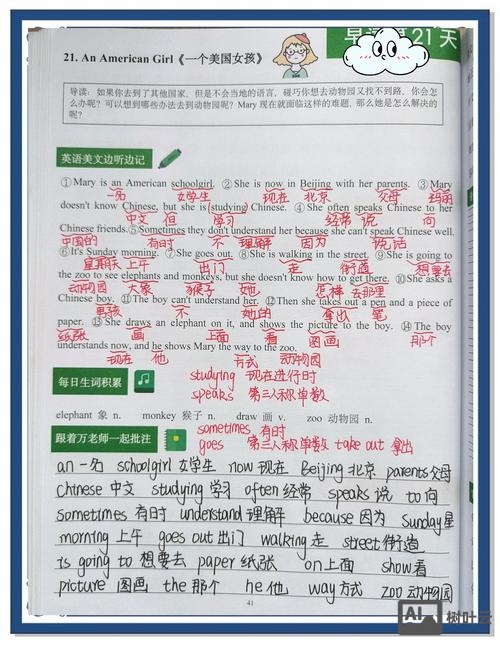 早读第21天
21. An American Girl《一个美国女孩》
导读：如果你去到了其他国家，但是不会当地的语言，碰巧你想去动物园又找不到路，你会怎
么办呢？可以想到哪些办法去到动物园呢？Mary 现在就面临这样的难题，那么她是怎么解决的
呢？
英语美文边听边记
①Mary is an American schoolgirl. ②She is now in Beijing with her parents. ③Mary
一名 女学生 现在 北京 父母 玛丽
doesn't know Chinese, but she is (studying) Chinese. ④She often speaks Chinese to her
中文 但 学习 经常 说 向
Chinese friends. ⑤Sometimes they don't understand her because she can't speak Chinese well.
中国的 有时 不 理解 因为 说话
⑥It's Sunday morning. ⑦She goes out. ⑧She is walking in the street. ⑨She is going to
星期天 上午 出门 走 街道 想要去
the zoo to see elephants and monkeys, but she doesn't know how to get there. ⑩She asks a
动物园 大象 猴子 她 怎样 去那里
Chinese boy. ⑪The boy can't understand her. ⑫Then she takes out a pen and a piece of
男孩 不 她的 拿出 笔
paper. ⑬She draws an elephant on it, and shows the picture to the boy. ⑭The boy
纸张 画 上面 看 图画 那个
understands now, and he shows Mary the way to the zoo.
现在 他 方式 动物园
studying 现在进行时
每日生词积累
speaks 第三人称单数
elephant 象 n. monkey 猴子 n. draw 画 v. zoo 动物园 n.
sometimes 有时
跟着万老师一起批注
goes 第三人称单数 take out 拿出
an 一名 schoolgirl 女学生 now 现在 Beijing 北京 parents 父母
Chinese 中文 studying 学习 often 经常 speaks 说 to 向
sometimes 有时 understand 理解 because 因为 Sunday 星
morning 上午 goes out 出门 walking 走 street 街道
is going to 想要去 paper 纸张 on 上面 show 看
picture 图画 the 那个 he 他 way 方式 zoo 动物园
41
AI 树叶云